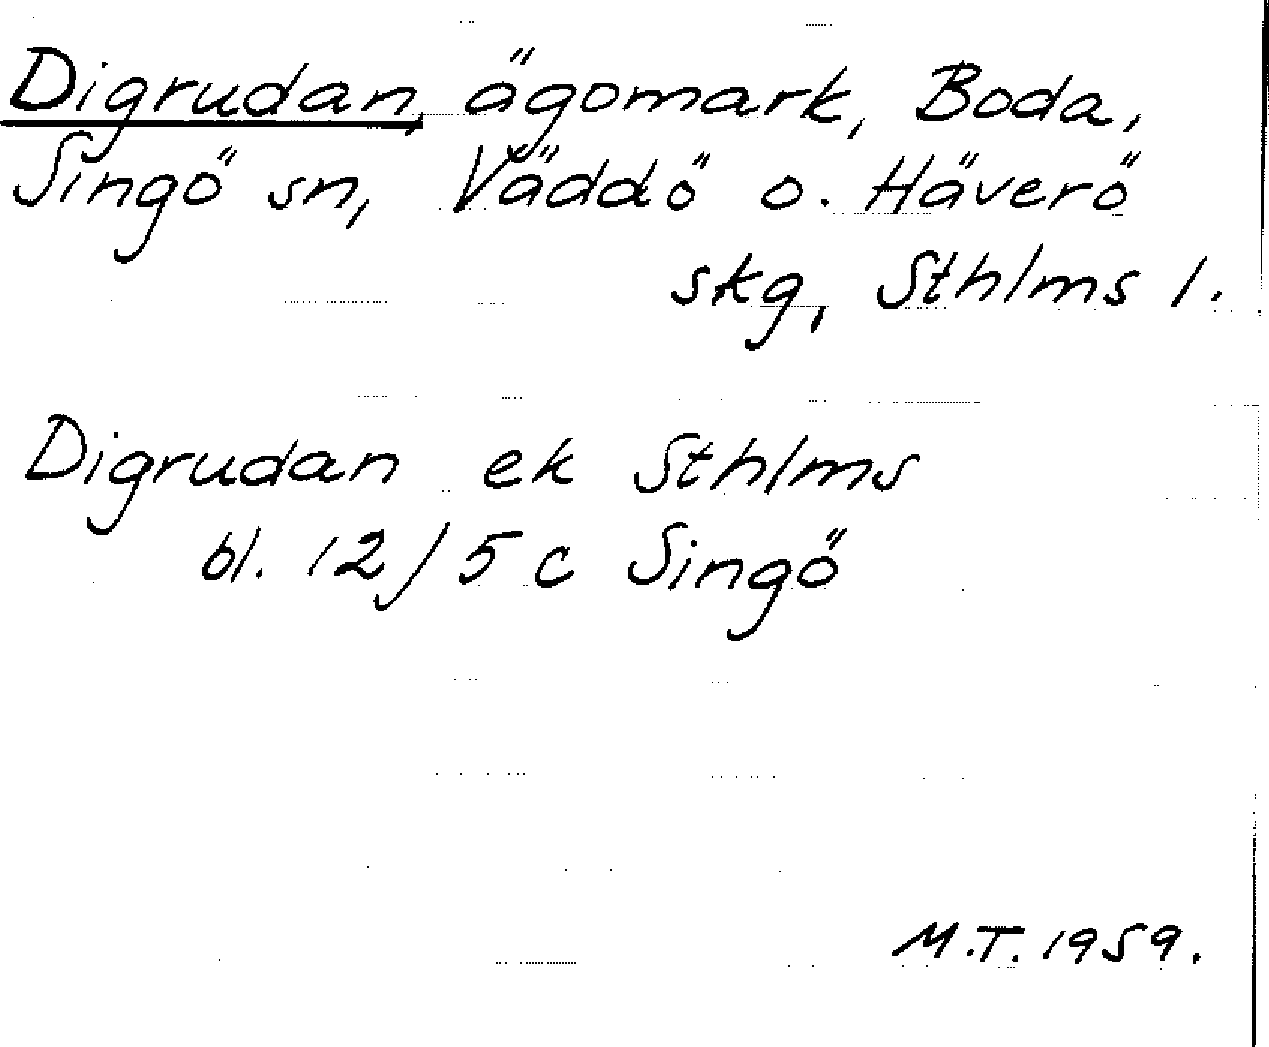 Digrudan, ägomark, Boda,
Singö sn, Väddö o. Häverö
skg, Sthlms l.
Digrudan ek Sthlms
bl. 12/5 c Singö
M.T. 1959.